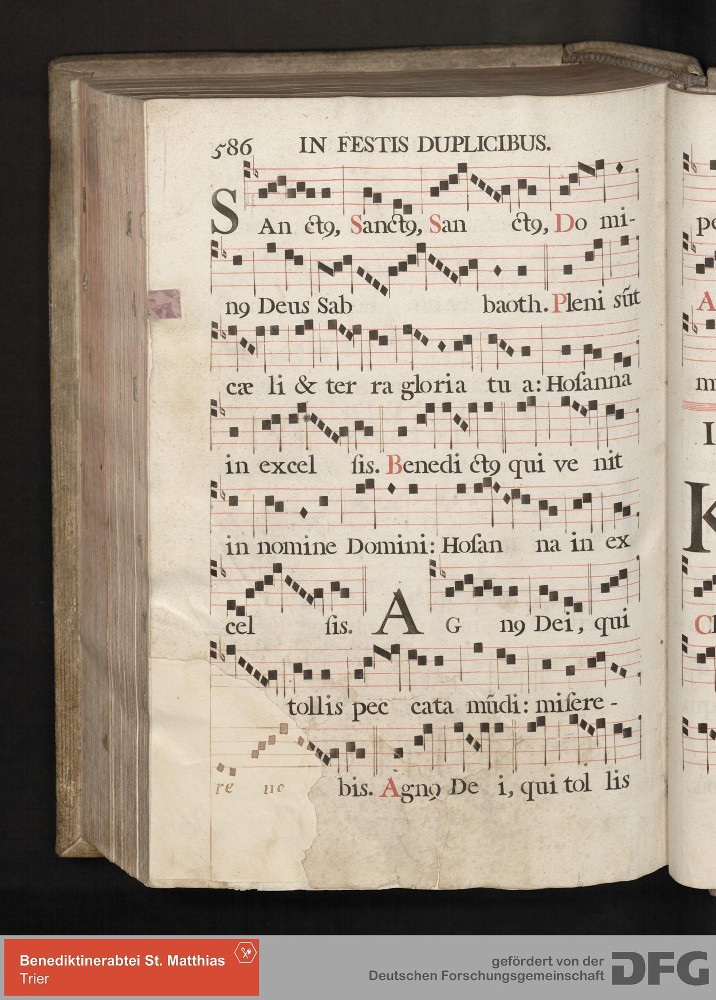 586 IN FESTIS DUPLICIBUS.
SAn ctꝯ, Sanctꝯ, San ctꝯ, Do mi-
nꝯ Deus Sab baoth. Pleni sūt
cæ li & ter ra gloria tu a: Hoſanna
in excel ſis. Benedi ctꝯ qui ve nit
in nomine Domini: Hoſan na in ex
cel ſis. A G nꝯ Dei, qui
tollis pec cata mūdi: miſere-
re no bis. Agnꝯ De i, qui tol lis
pe
A
m
I
K
Benediktinerabtei St. Matthias
Trier
gefördert von der
Deutschen Forschungsgemeinschaft
DFG